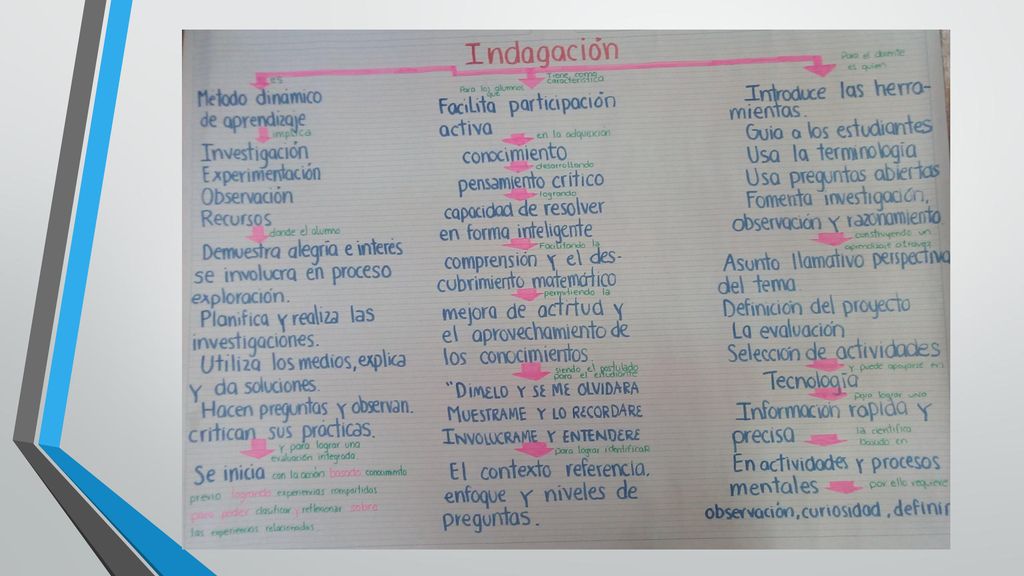 Indagación
es
Método dinámico
de aprendizaje
implica
Investigación
Experimentación
Observación
Recursos
donde el alumno
Demuestra alegría e interés
se involucra en proceso
exploración.
Planifica y realiza las
investigaciones.
Utiliza los medios, explica
y da soluciones.
Hacen preguntas y observan.
critican sus prácticas.
y para lograr una
evaluación integrada
Se inicia con la acción basado conocimiento
previo logrando experiencias compartidas
para poder clasificar y reflexionar sobre
las experiencias relacionadas.
Tiene como
característica
Para los alumnos
que
Facilita participación
activa
en la adquisición
conocimiento
desarrollando
pensamiento crítico
logrando
capacidad de resolver
en forma inteligente
Facilitando la
comprensión y el des-
cubrimiento matemático
permitiendo la
mejora de actitud y
el aprovechamiento de
los conocimientos
siendo el postulado
para el estudiante
"DIMELO Y SE ME OLVIDARA
MUESTRAME Y LO RECORDARE
INVOLUCRAME Y ENTENDERE
para lograr identificar
El contexto referencia.
enfoque y niveles de
preguntas.
Para el docente
es quien
Introduce las herra-
mientas.
Guia a los estudiantes
Usa la terminología
Usa preguntas abiertas
Fomenta investigación,
observación y razonamiento
construyendo un
aprendizaje a través
Asunto llamativo perspectiva
del tema.
Definición del proyecto
La evaluación
Selección de actividades
y puede apoyarse en:
Tecnología
para lograr una
Información rapida y
precisa
la científica
basado en
En actividades y procesos
mentales
por ello requiere
observación, curiosidad, definir